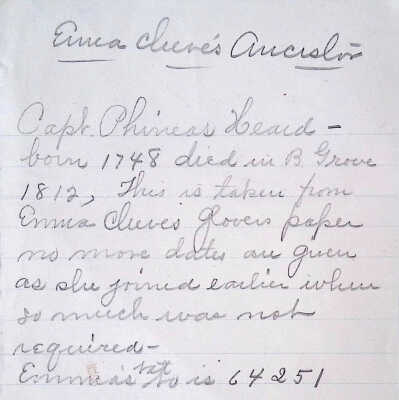 Emma Cleve's Ancestor
Capt. Phineas Heard –
born 1748 died in B. Grove
1812, This is taken from
Emma Cleves Glovers paper
no more dates are given
as she joined earlier when
so much was not
required –
Emma's no is 64251